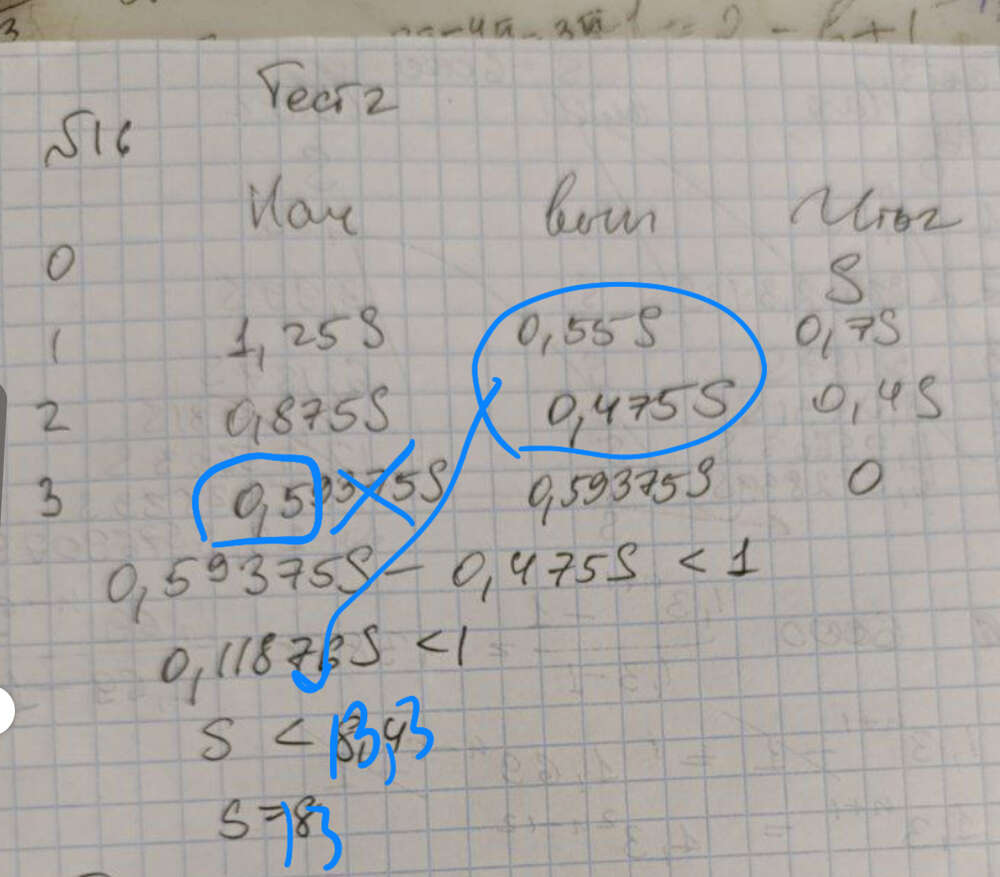 Тест 2
№16
Нач Вып Итог
0 S
1 1,25S 0,55S 0,7S
2 0,875S 0,475S 0,4S
3 0,59375S 0,59375S 0
0,59375S - 0,475S < 1
0,11875S < 1
S < 13,3
S = 13